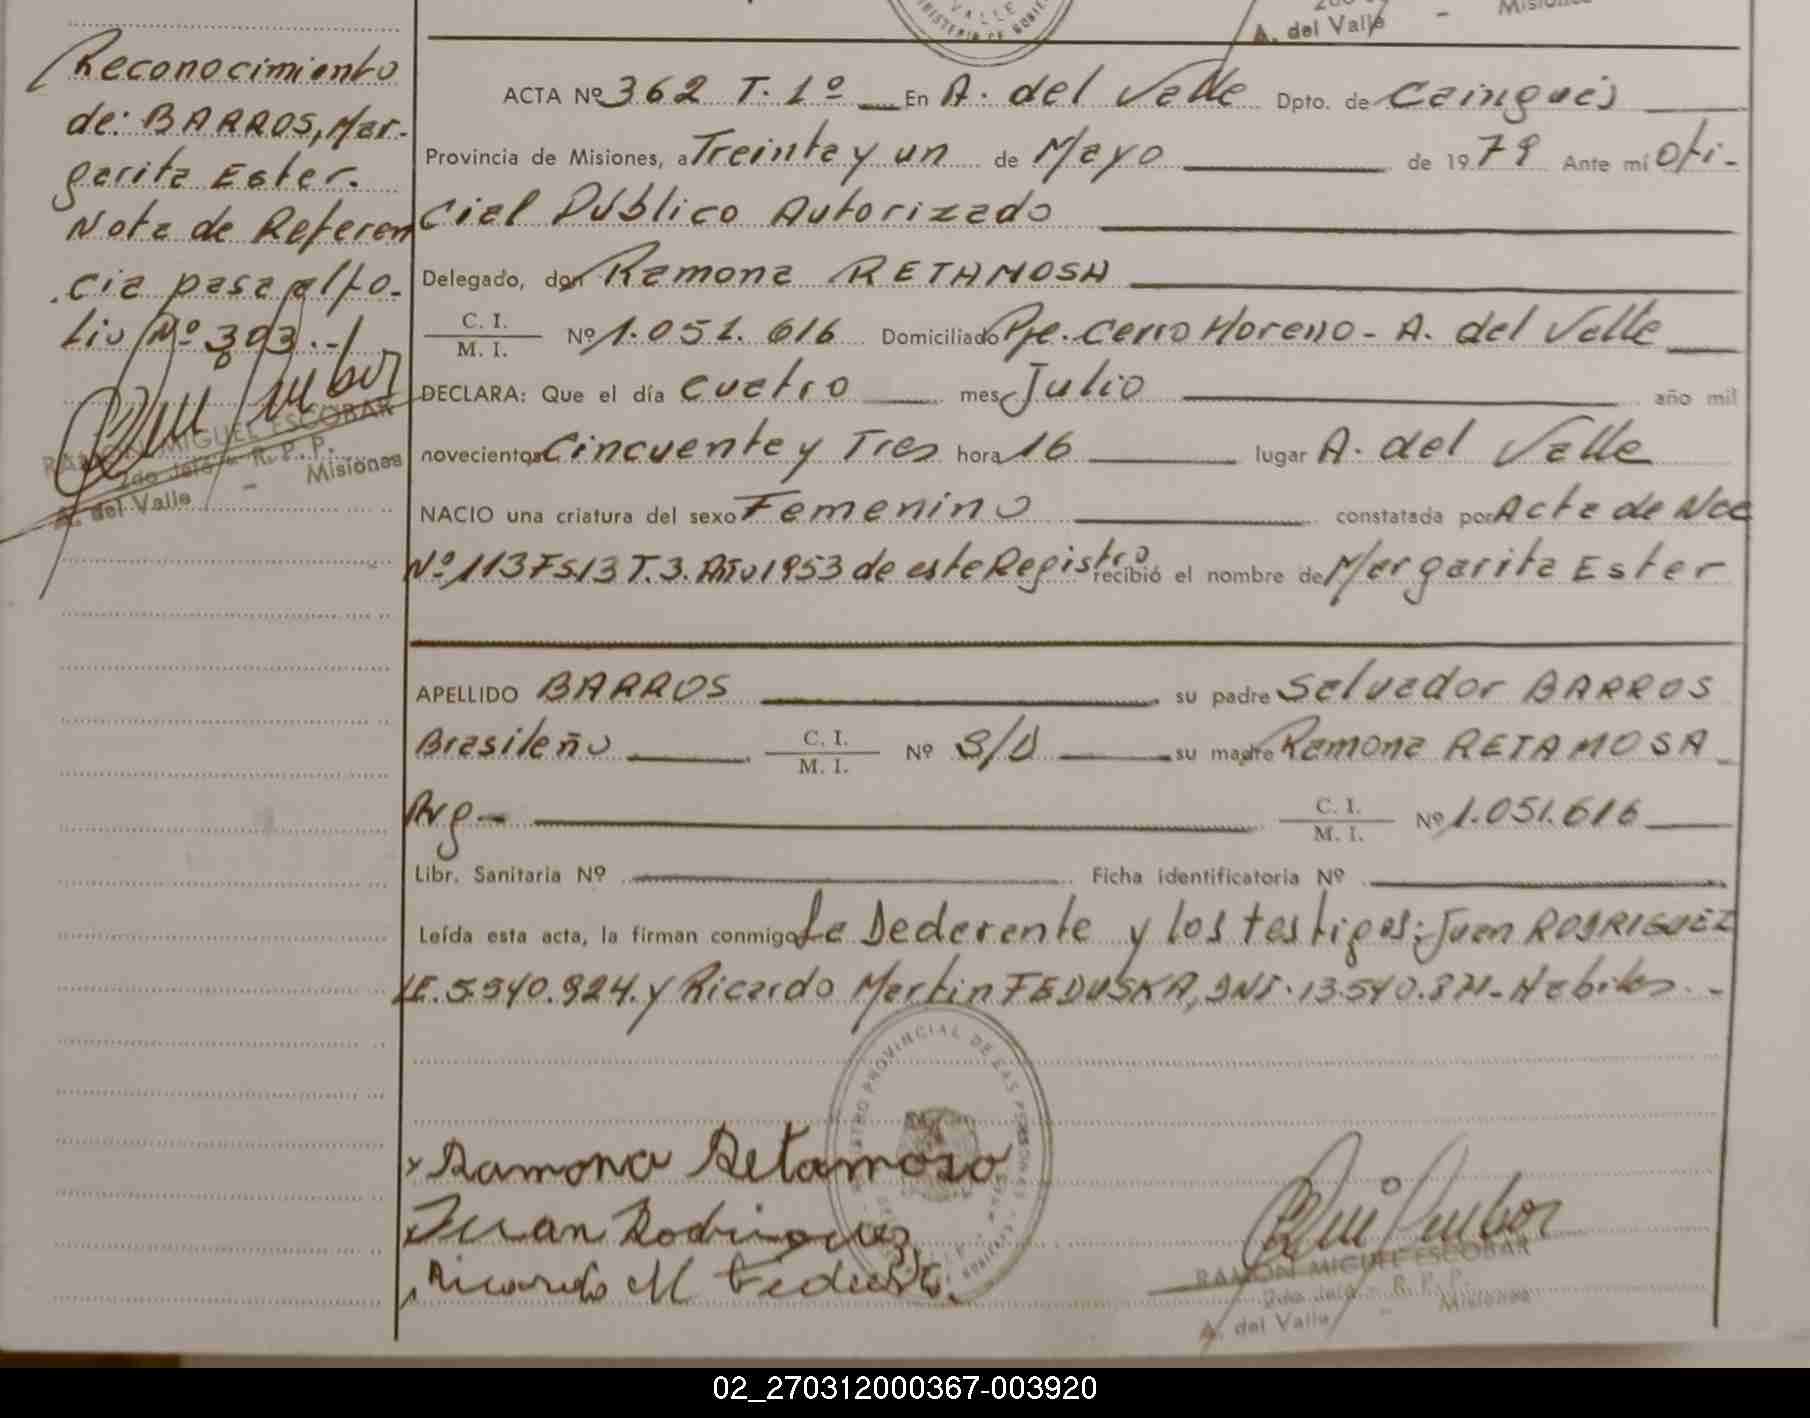 VALLE
MINISTERIO DE GOBIE
A. del Valle - Misiones
Reconocimiento
de: BARROS, Mar-
garita Ester.
Nota de Referen
cia pasa al fo-
lio Nº 393.-
RAMON MIGUEL ESCOBAR
2do Jefe - R. P. P.
A. del Valle - Misiones
ACTA Nº 362 T. 1º En A. del Valle Dpto. de Cainguás
Provincia de Misiones, a Treinta y un de Mayo de 1979 Ante mí Ofi-
cial Público Autorizado
Delegado, don Ramona RETAMOSA
C. I.
M. I. Nº 1.051.616 Domiciliado Pje. Cerro Moreno - A. del Valle
DECLARA: Que el día cuatro mes Julio año mil
novecientos Cincuenta y Tres hora 16 lugar A. del Valle
NACIO una criatura del sexo Femenino constatada por Acta de Nac
Nº 113 Fs 13 T. 3. Año 1953 de este Registro recibió el nombre de Margarita Ester
APELLIDO BARROS su padre Salvador BARROS
Brasileño C. I.
M. I. Nº S/D su madre Ramona RETAMOSA
Arg- C. I.
M. I. Nº 1.051.616
Libr. Sanitaria Nº Ficha identificatoria Nº
Leída esta acta, la firman conmigo La Dederente y los testigos; Juan RODRIGUEZ
LE. 5.540.924. y Ricardo Martin FEDUSKA, DNI. 13.540.871- Habiles.-
REGISTRO PROVINCIAL DE LAS PERSONAS
x Ramona Retamoso
x Juan Rodriguez
Ricardo M Feduska.
RAMON MIGUEL ESCOBAR
2do Jefe - R. P. P.
A. del Valle - Misiones
02_270312000367-003920